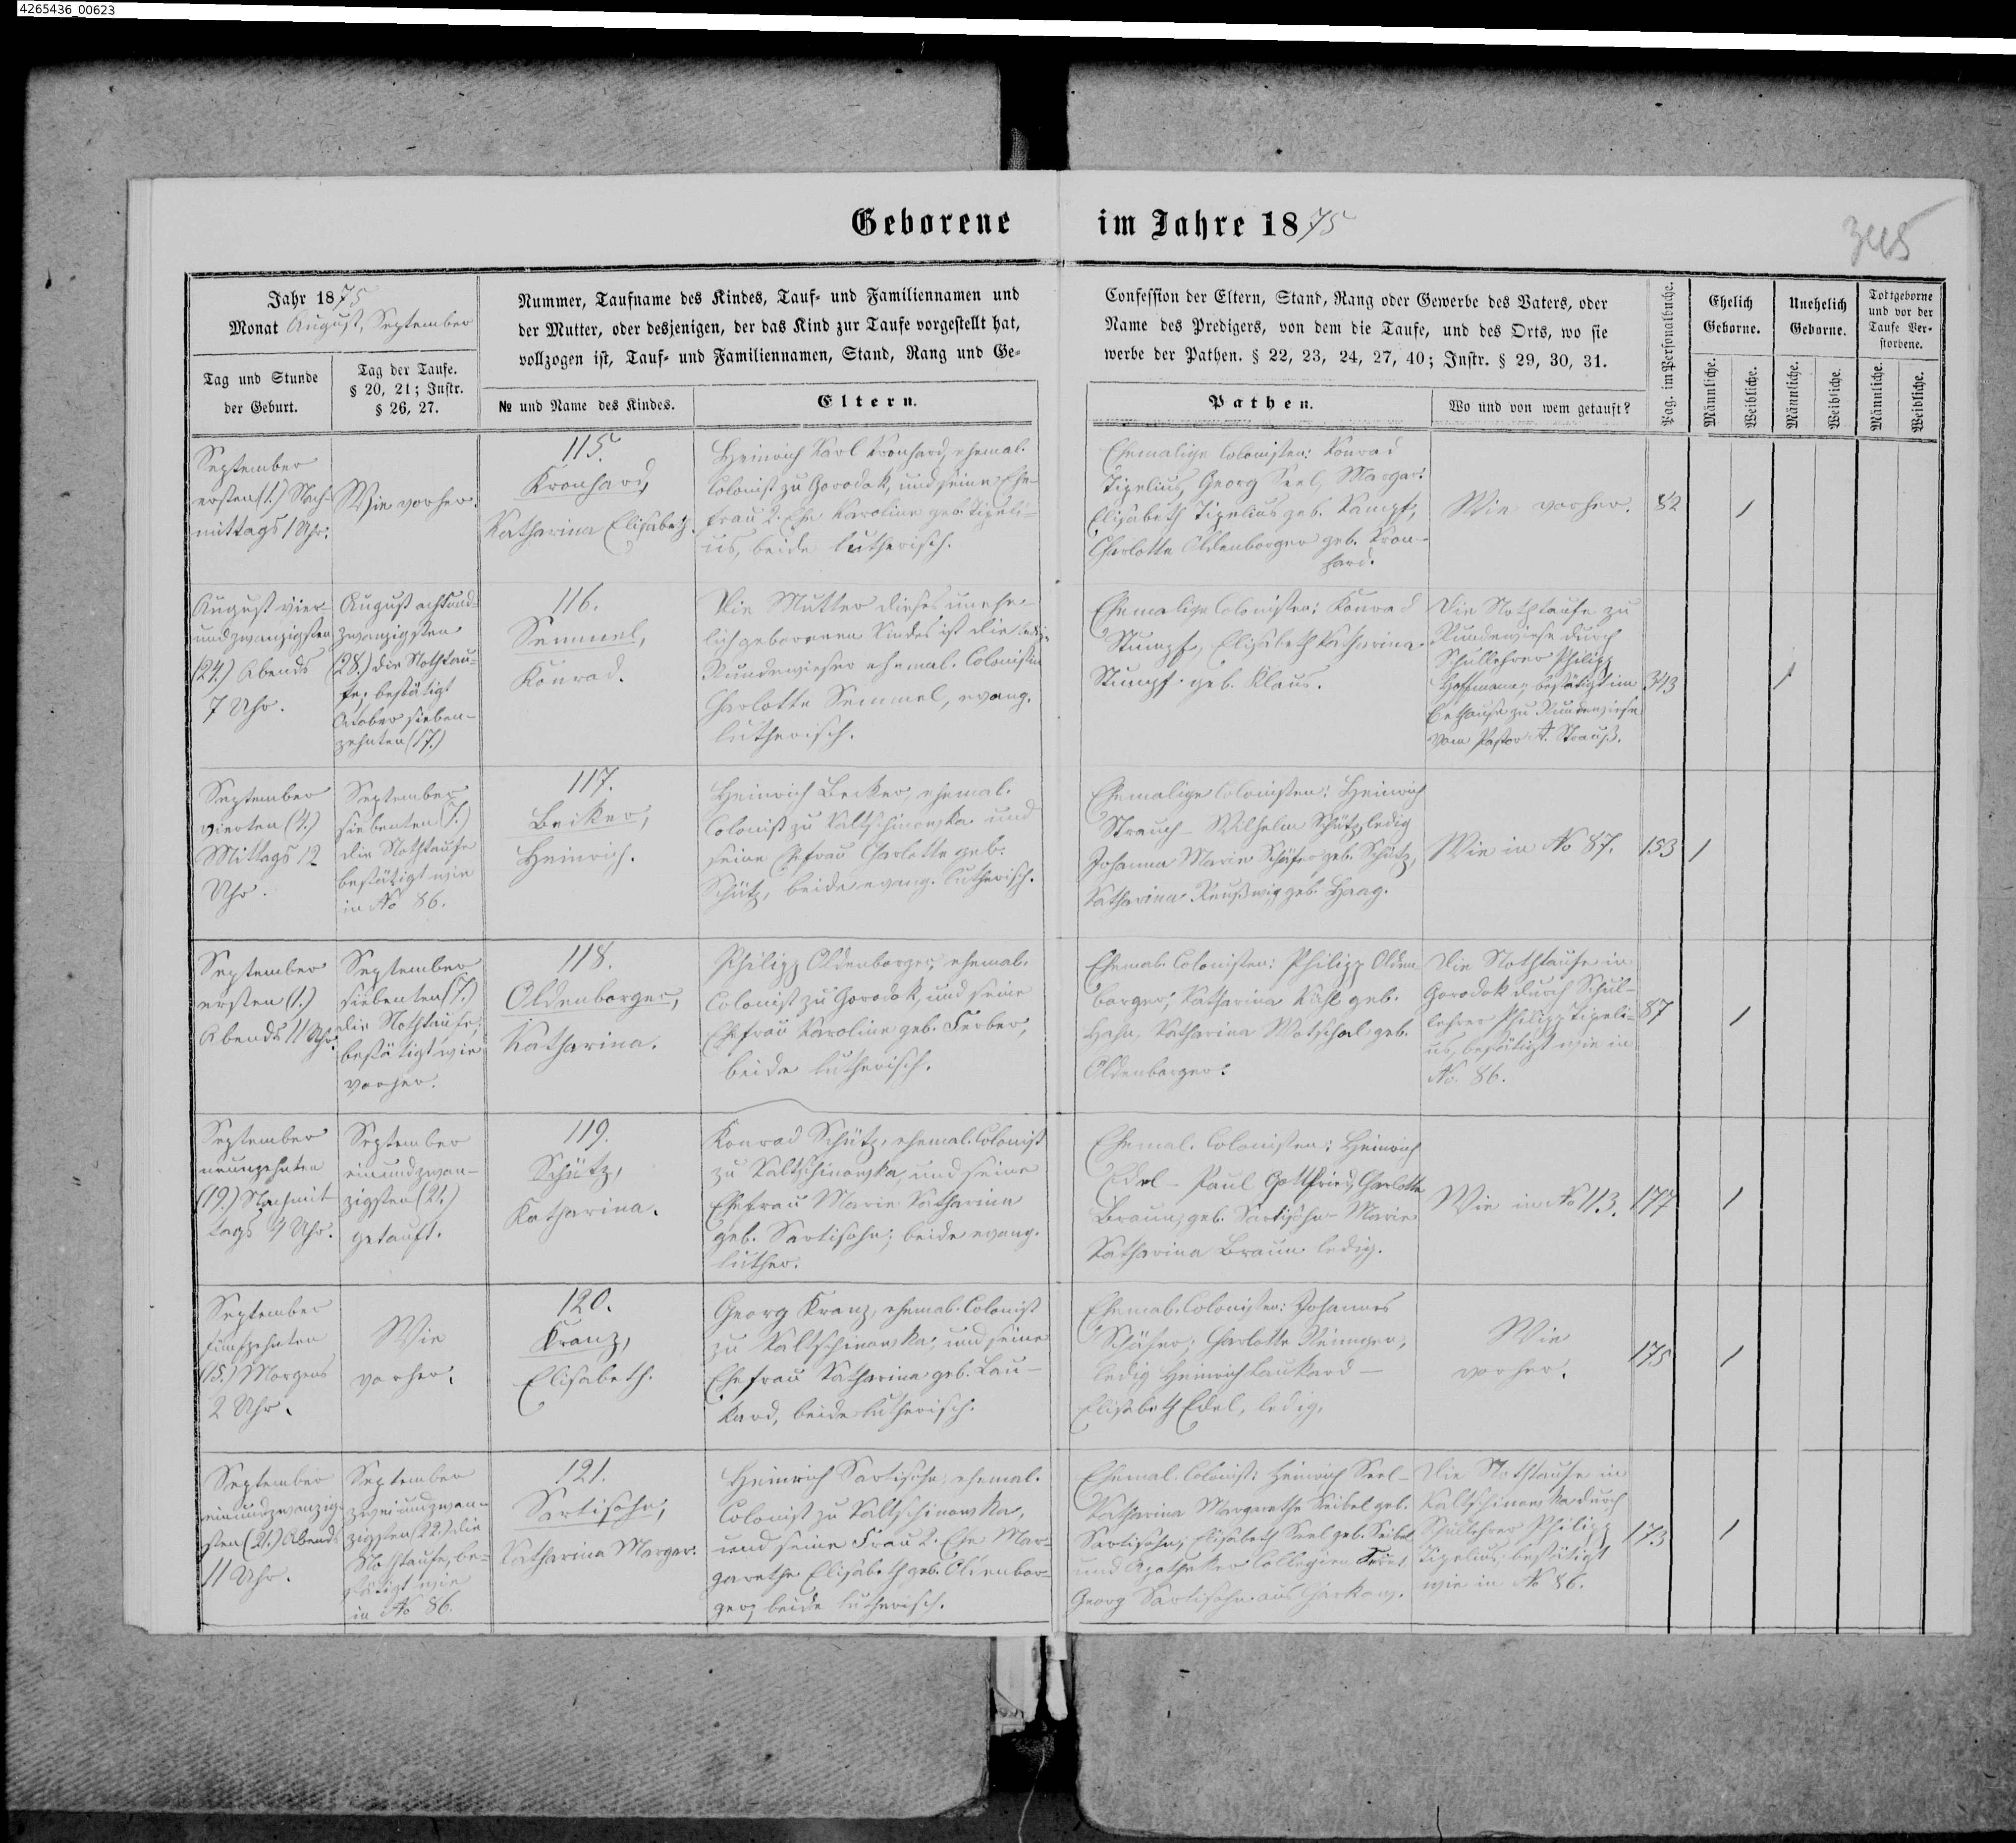 4265436_00623
Geborene im Jahre 1875
345
Jahr 1875
Monat August, September
Tag und Stunde
der Geburt.
Tag der Taufe.
§ 20, 21; Instr.
§ 26, 27.
Nummer, Taufname des Kindes, Tauf- und Familiennamen und
der Mutter, oder desjenigen, der das Kind zur Taufe vorgestellt hat,
vollzogen ist, Tauf- und Familiennamen, Stand, Rang und Ge-
№ und Name des Kindes.
Eltern.
Confession der Eltern, Stand, Rang oder Gewerbe des Vaters, oder
Name des Predigers, von dem die Taufe, und des Orts, wo sie
werbe der Pathen. § 22, 23, 24, 27, 40; Instr. § 29, 30, 31.
Pathen.
Wo und von wem getauft?
Pag. im Personalbuche.
Ehelich
Geborne.
Unehelich
Geborne.
Todtgeborne
und vor der
Taufe Ver-
storbene.
Männliche.
Weibliche.
Männliche.
Weibliche.
Männliche.
Weibliche.
September
ersten (1.) Nach-
mittags 1 Uhr.
Wie vorher.
115.
Kronhard,
Katharina Elisabeth.
Heinrich Karl Kronhard, ehemal.
Colonist zu Gorodok, und seine Ehe-
frau 2. Ehe Karoline geb. Tipeli-
us, beide lutherisch.
Ehemalige Colonisten: Konrad
Tipelius, Georg Seel, Margar.
Elisabeth Tipelius geb. Kampf,
Charlotte Oldenborger geb. Kron-
hard.
Wie vorher.
82
1
August vier-
undzwanzigsten
(24.) Abends
7 Uhr.
August achtund-
zwanzigsten
(28.) die Nothtau-
fe; bestätigt
October sieben-
zehnten (17.)
116.
Semmel,
Konrad.
Die Mutter dieses unehe-
lich geborenen Kindes ist die ledige
Rundewieser ehemal. Colonistin
Charlotte Semmel, evang.
lutherisch.
Ehemalige Colonisten: Konrad
Stumpf, Elisabeth Katharina
Stumpf geb. Klaus.
Die Nothtaufe zu
Rundewiese durch
Schullehrer Philipp
Hoffmann; bestätigt im
Bethause zu Rundewiese
vom Pastor A. Strauß.
343
1
September
vierten (4.)
Mittags 12
Uhr.
September
siebenten (7.)
die Nothtaufe
bestätigt wie
in No 86.
117.
Becker,
Heinrich.
Heinrich Becker, ehemal.
Colonist zu Kaltschinowka und
seine Ehefrau Charlotte geb.
Schütz, beide evang. lutherisch.
Ehemalige Colonisten: Heinrich
Strauch - Wilhelm Schütz, ledig
Johanna Marie Schäfer geb. Schütz,
Katharina geb. Haag.
Wie in No 87.
153
1
September
ersten (1.)
Abends 11 Uhr.
September
siebenten (7.)
die Nothtaufe,
bestätigt wie
vorher.
118.
Oldenborger,
Katharina.
Philipp Oldenborger, ehemal.
Colonist zu Gorodok, und seine
Ehefrau Karoline geb. Ferber,
beide lutherisch.
Ehemal. Colonisten: Philipp Olden-
borger; Katharina geb.
Hahn, Katharina geb.
Oldenborger.
Die Nothtaufe in
Gorodok durch Schul-
lehrer Philipp Tipeli-
us, bestätigt wie in
No. 86.
87
1
September
neunzehnten
(19.) Nachmit-
tags 4 Uhr.
September
einundzwan-
zigsten (21.)
getauft.
119.
Schütz,
Katharina.
Konrad Schütz, ehemal. Colonist
zu Kaltschinowka, und seine
Ehefrau Marie Katharina
geb. Sartisohn; beide evang.
luther.
Ehemal. Colonisten: Heinrich
Edel - Paul Gottfried, Charlotte
Braun, geb. Sartisohn - Marie
Katharina Braun ledig.
Wie in No 113.
177
1
September
fünfzehnten
(15.) Morgens
2 Uhr.
Wie
vorher.
120.
Kranz,
Elisabeth.
Georg Kranz, ehemal. Colonist
zu Kaltschinowka, und seine
Ehefrau Katharina geb. Lau-
kard, beide lutherisch.
Ehemal. Colonisten: Johannes
Schäfer; Charlotte
ledig Heinrich Laukard -
Elisabeth Edel, ledig.
Wie
vorher.
175
1
September
einundzwanzig-
sten (21.) Abends
11 Uhr.
September
zweiundzwan-
zigsten (22.) die
Nothtaufe, be-
stätigt wie
in No 86.
121.
Sartisohn,
Katharina Margar.
Heinrich Sartisohn, ehemal.
Colonist zu Kaltschinowka,
und seine Frau 2. Ehe Mar-
garethe Elisabeth geb. Oldenbor-
ger, beide lutherisch.
Ehemal. Colonist: Heinrich Seel -
Katharina Margarethe Seibel geb.
Sartisohn; Elisabeth Seel geb. Seibel
und Apotheker Collegien
Georg Sartisohn aus Charkow.
Die Nothtaufe in
Kaltschinowka durch
Schullehrer Philipp
Tipelius; bestätigt
wie in No 86.
173
1